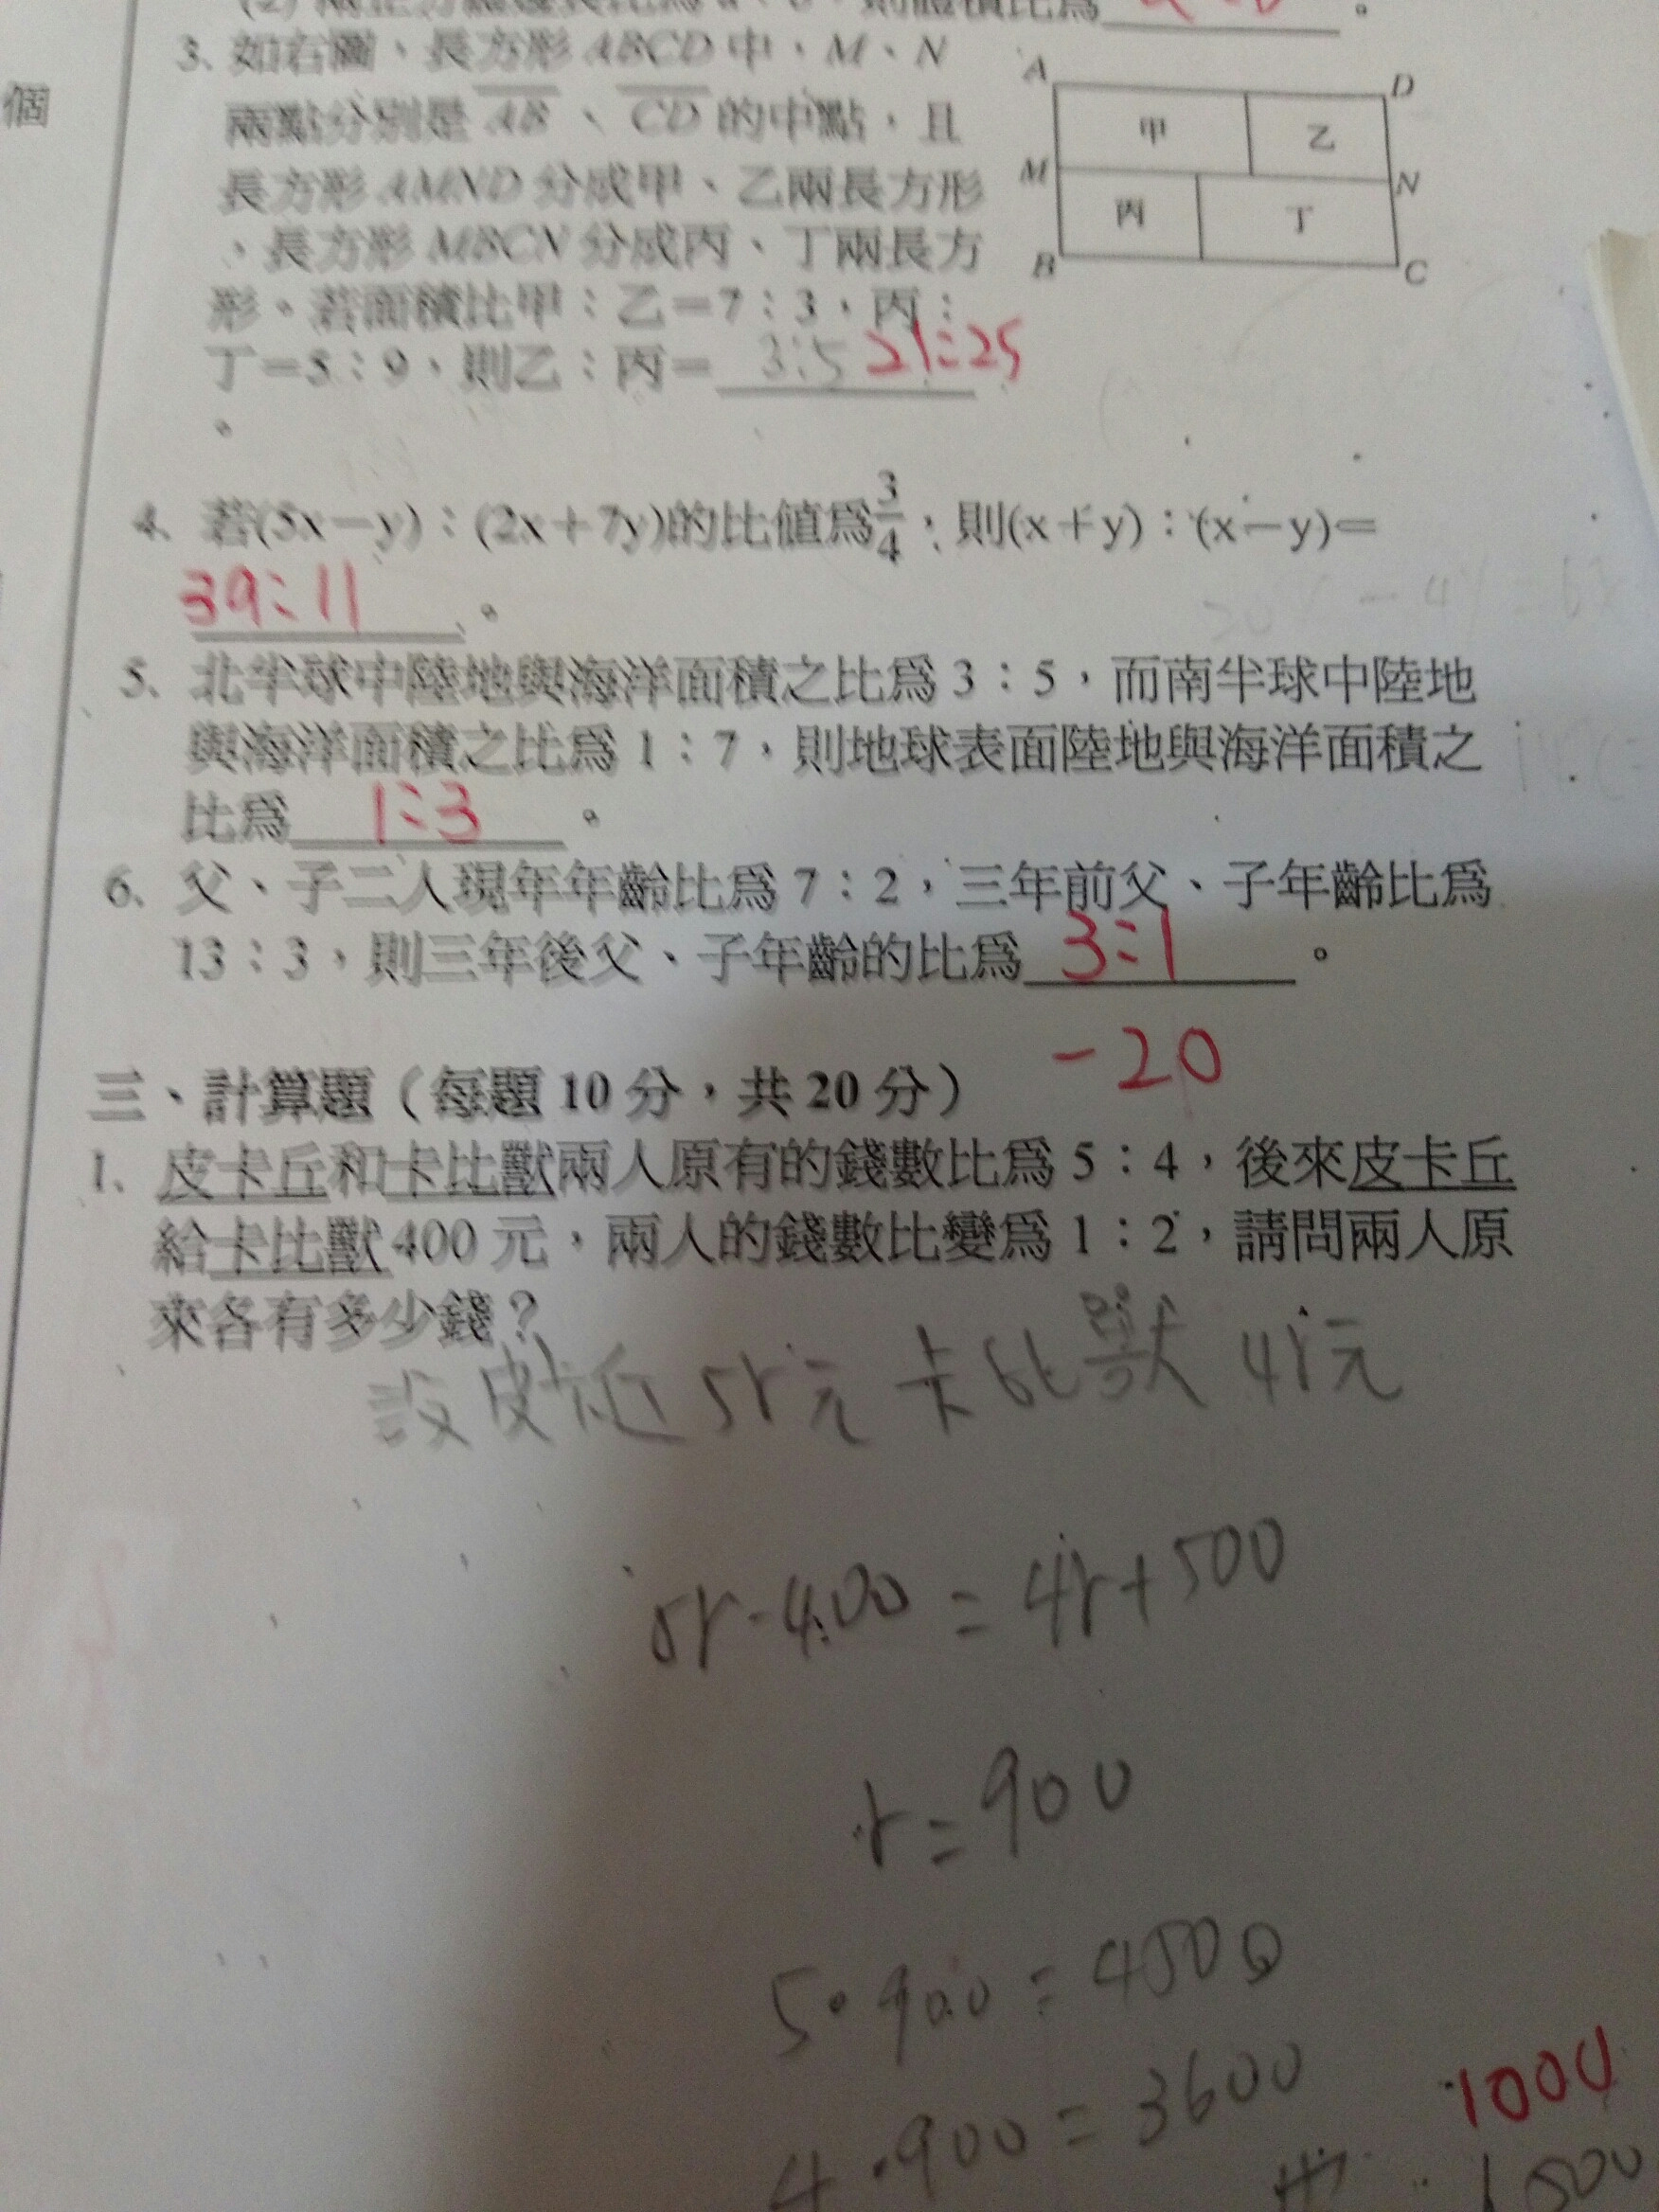 個
3. 如右圖，長方形 ABCD 中，M、N
兩點分別是 AB、CD 的中點，且
長方形 AMND 分成甲、乙兩長方形
、長方形 MBCN 分成丙、丁兩長方
形。若面積比甲：乙＝7：3，丙：
丁＝5：9，則乙：丙＝ 3:5 21:25
。
A
D
甲
乙
M
N
丙
丁
B
C
4. 若(5x－y)：(2x＋7y)的比值為3/4，則(x＋y)：(x－y)＝
39:11 。
5. 北半球中陸地與海洋面積之比為 3：5，而南半球中陸地
與海洋面積之比為 1：7，則地球表面陸地與海洋面積之
比為 1:3 。
6. 父、子二人現年年齡比為 7：2，三年前父、子年齡比為
13：3，則三年後父、子年齡的比為 3:1 。
-20
三、計算題（每題 10 分，共 20 分）
1. 皮卡丘和卡比獸兩人原有的錢數比為 5：4，後來皮卡丘
給卡比獸 400 元，兩人的錢數比變為 1：2，請問兩人原
來各有多少錢？
設皮卡丘 5r元 卡比獸 4r元
5r-400=4r+500
r=900
5·900=4500
4·900=3600
1000